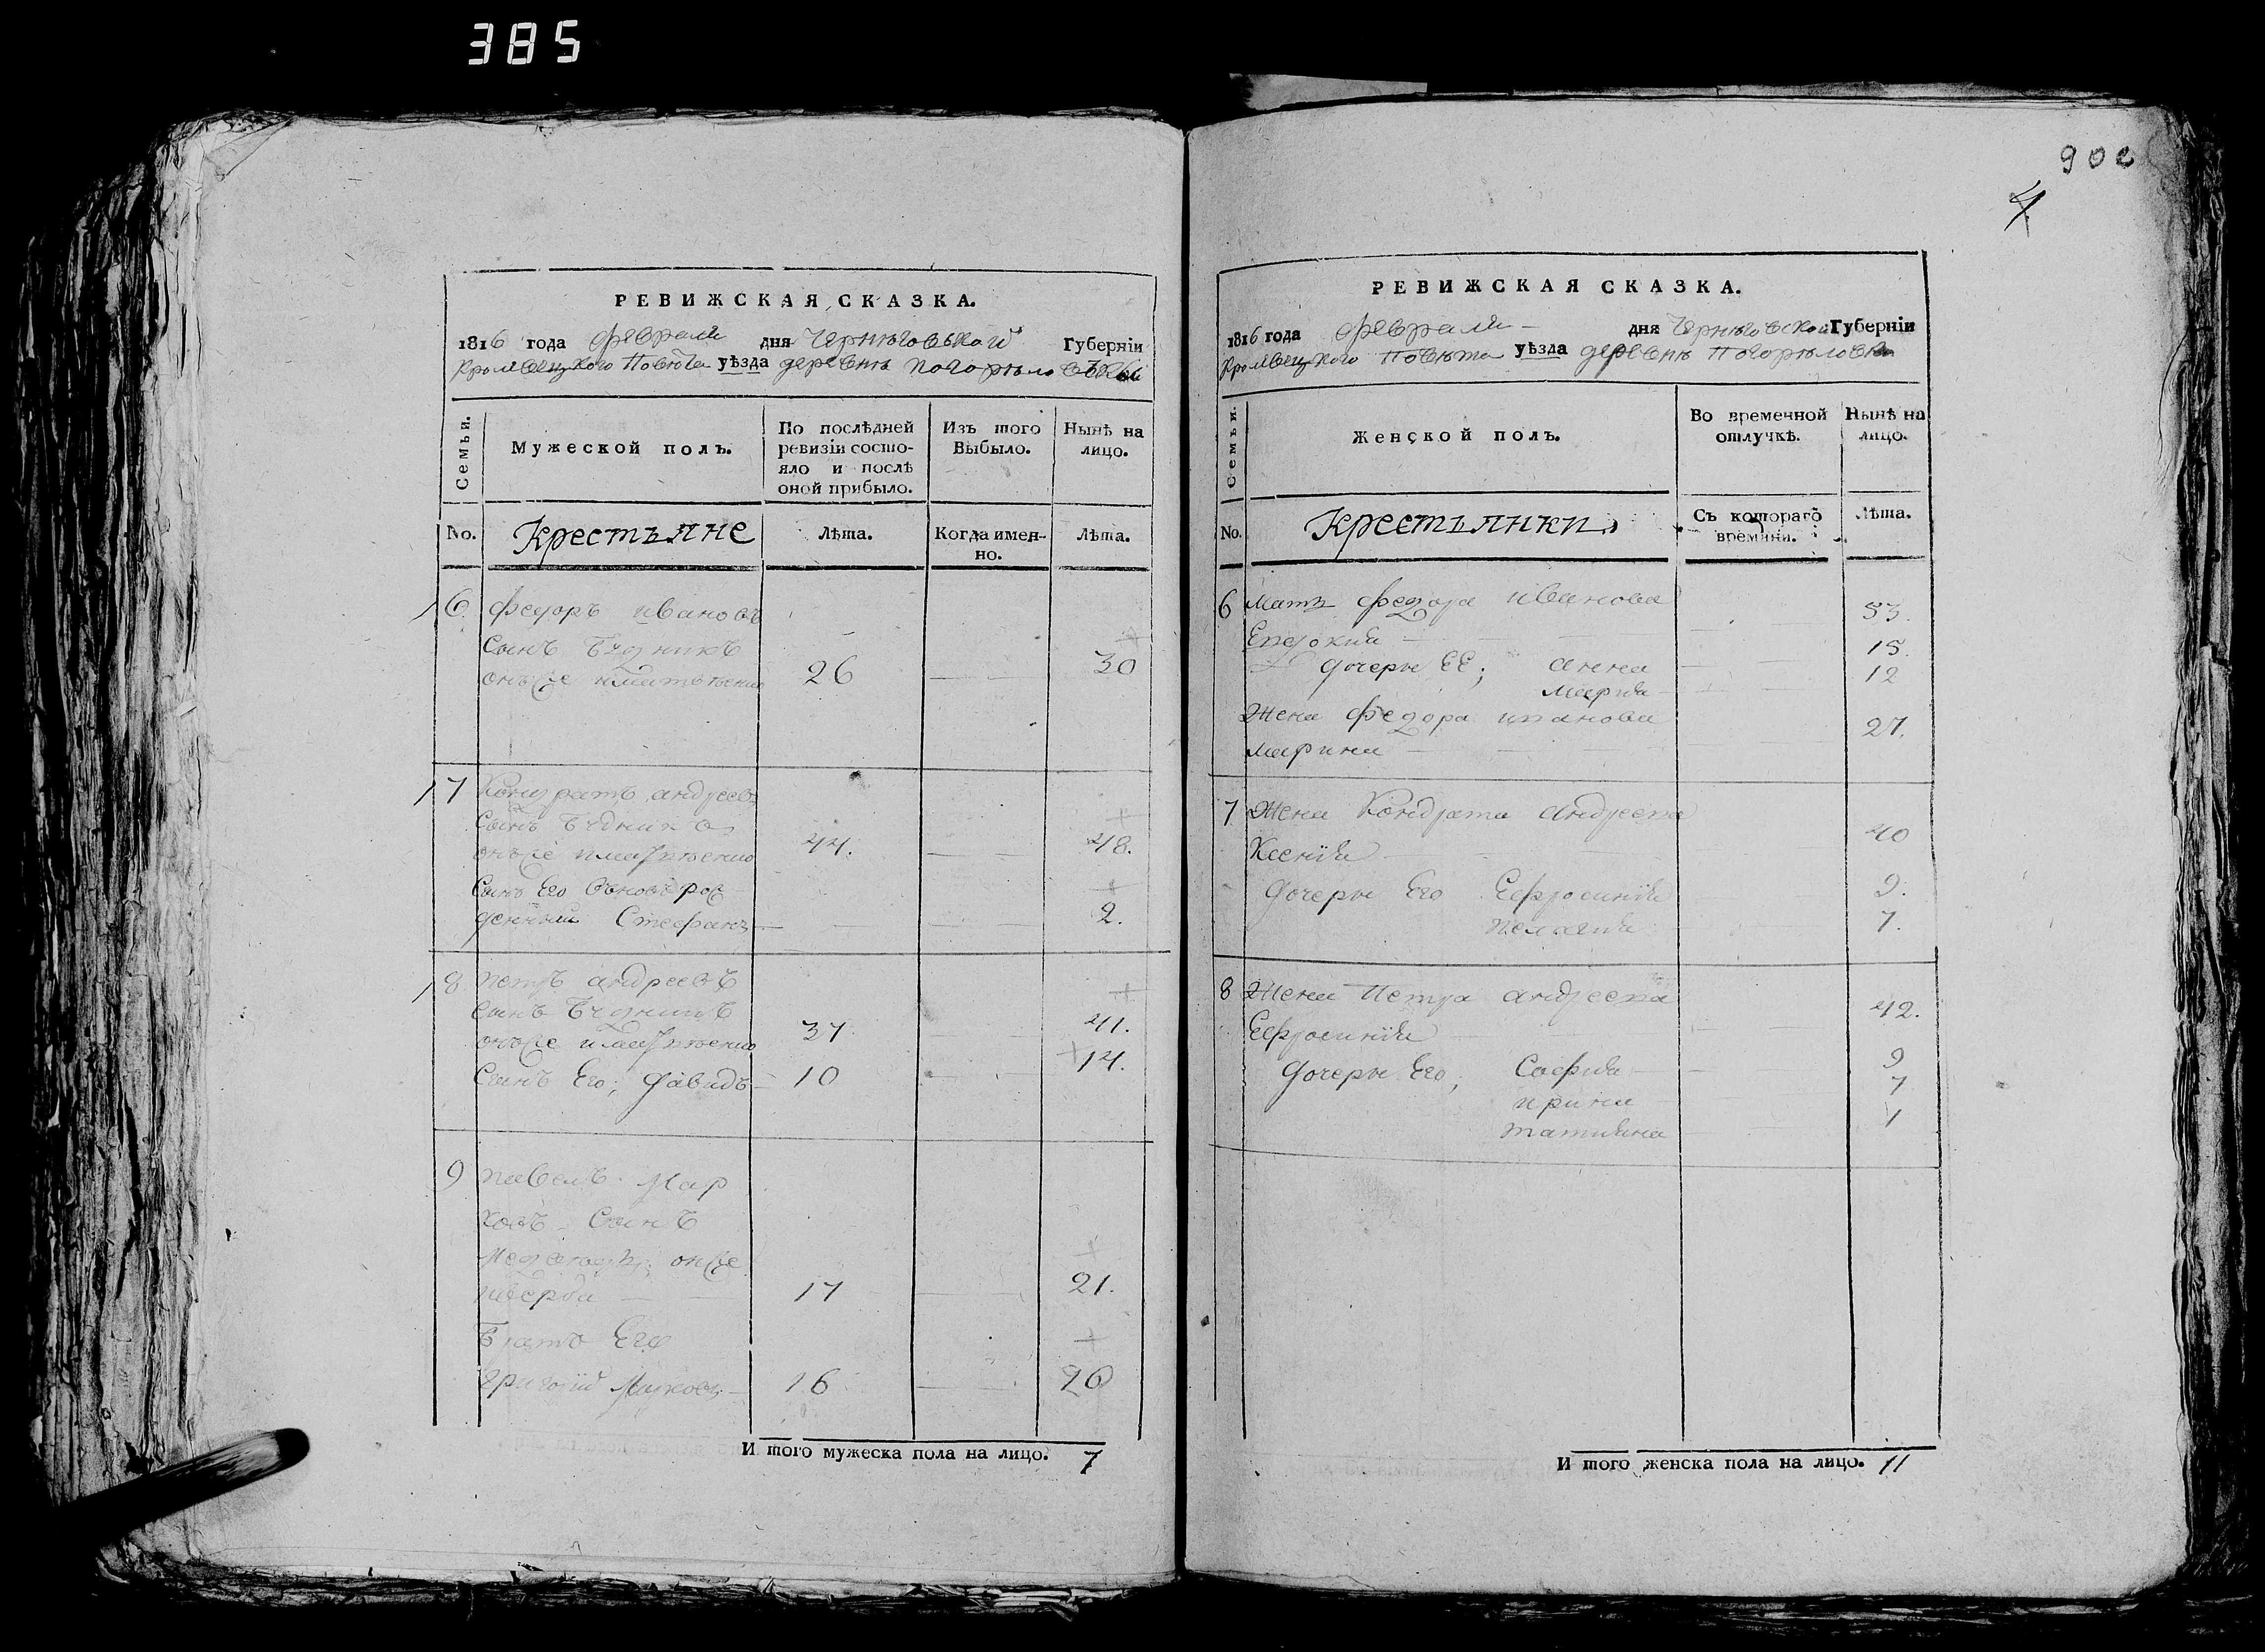 385
900
4
РЕВИЖСКАЯ СКАЗКА.
1816 года февраля дня Черниговской Губерніи
Кролевецкого Повѣта уѣзда деревнѣ Погорѣловки
Семьи.
Мужеской полъ.
По послѣдней ревизіи состояло и послѣ оной прибыло.
Изъ того Выбыло.
Нынѣ на лицо.
No.
Крестьяне
Лѣта.
Когда именно.
Лѣта.
6 федоръ ивановъ
Сынъ
26 30
7 Кондратъ андреевъ
Сынъ
44. 48.
Сынъ Его вновъ рож
денный Стефанъ 2.
8 петръ андреевъ
Сынъ
37 41.
Сынъ Его; давидъ 10 14.
9 павелъ Мар
ковъ Сынъ
17 21.
братъ Его
григорій Марковъ 16 20
И того мужеска пола на лицо. 7
РЕВИЖСКАЯ СКАЗКА.
1816 года февраля дня Черниговской Губерніи
Кролевецкого Повѣта уѣзда деревнѣ Погорѣловки
Семьи.
Женской полъ.
Во временной отлучкѣ.
Нынѣ на лицо.
No.
Крестьянки
Съ котораго времяни.
Лѣта.
6 Мать федора иванова 53.
Евдокия
дочери ЕЕ; анна 15.
мария 12
Жена федора иванова 27.
марина
7 Жена Кондрата андреева 40
Ксенія
дочери Его Ефросинія 9.
пелагия 7.
8 Жена Петра андреева 42.
Ефросинія
дочери Его; София 9
ирина 7
татияна 1
И того женска пола на лицо. 11